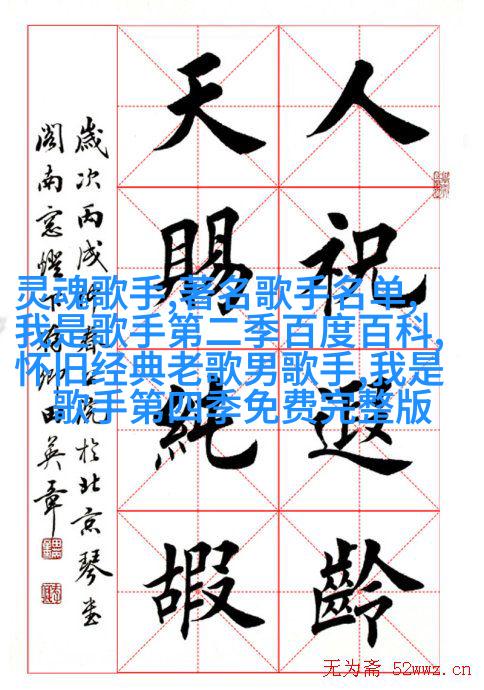 人祝遐齡
天賜純嘏
歲次丙戌仲春於北京琴
閣南窓燈下苑卿田英章
灵魂歌手,著名歌手名单,
我是歌手第二季百度百科,
怀旧经典老歌男歌手 我是
歌手第四季免费完整版
无为斋 52wwz.cn